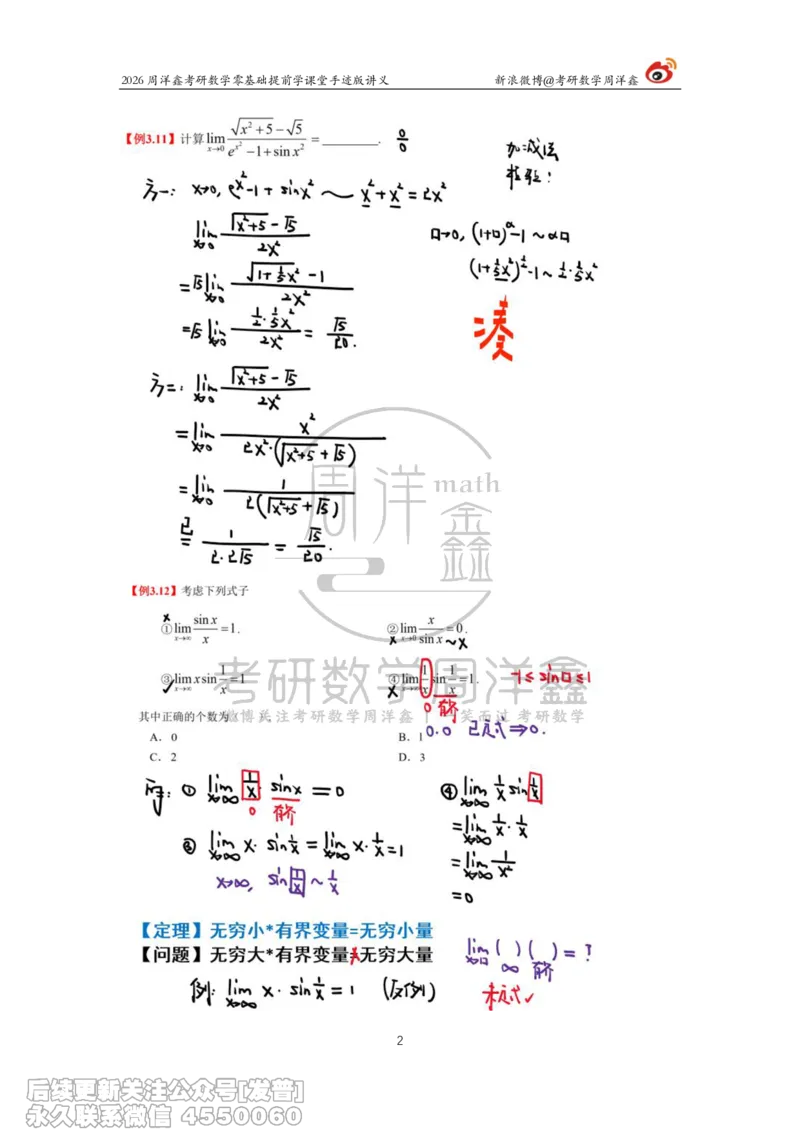 2026 周洋鑫考研数学零基础提前学课堂手迹版讲义 新浪微博@考研数学周洋鑫
【例3.11】计算 lim x→0 (√(x²+5) − √5)/(e^(x²) −1+sin x²) = ________. 0/0
加减法
检验!
方一: x→0, e^(x²)−1+sinx² ~ x²+x² = 2x²
lim x→0 (√(x²+5) − √5)/(2x²)
□→0, (1+□)^α −1 ~ α□
= √5 lim x→0 (√(1+1/5 x²) −1)/(2x²)
(1+1/5 x²)^(1/2) −1 ~ 1/2·1/5 x²
= √5 lim x→0 (1/2·1/5 x²)/(2x²) = √5/20.
凑
方二: lim x→0 (√(x²+5) − √5)/(2x²)
= lim x→0 x²/(2x²·(√(x²+5) + √5))
= lim x→0 1/(2(√(x²+5) + √5))
= 1/(2·2√5) = √5/20.
周洋 math 鑫
【例3.12】考虑下列式子
x ① lim x→∞ sin x/x = 1.
x ② lim x→0 x/sin x = 0. ~x
✓ ③ lim x→∞ x sin 1/x = 1
x ④ lim x→∞ 1/x sin 1/x = 1. −1 ≤ sin□ ≤ 1
0 有界
考研数学周洋鑫
其中正确的个数为
微博关注考研数学周洋鑫 | 笑而过 考研数学
A. 0 B. 1 0·0 已定式 ⇒ 0.
C. 2 D. 3
解: ① lim x→∞ 1/x · sinx = 0
0 有界
③ lim x→∞ x· sin 1/x = lim x→∞ x· 1/x = 1
x→∞, sin 1/x ~ 1/x
④ lim x→∞ 1/x sin 1/x
= lim x→∞ 1/x · 1/x
= lim x→∞ 1/x²
= 0
【定理】无穷小*有界变量=无穷小量
【问题】无穷大*有界变量≠无穷大量
lim x→□ ( ) ( ) = ?
∞ 有界
例: lim x→∞ x· sin 1/x = 1 (反例)
未定式 ✓
2
后续更新关注公众号[发普]
永久联系微信 4550060